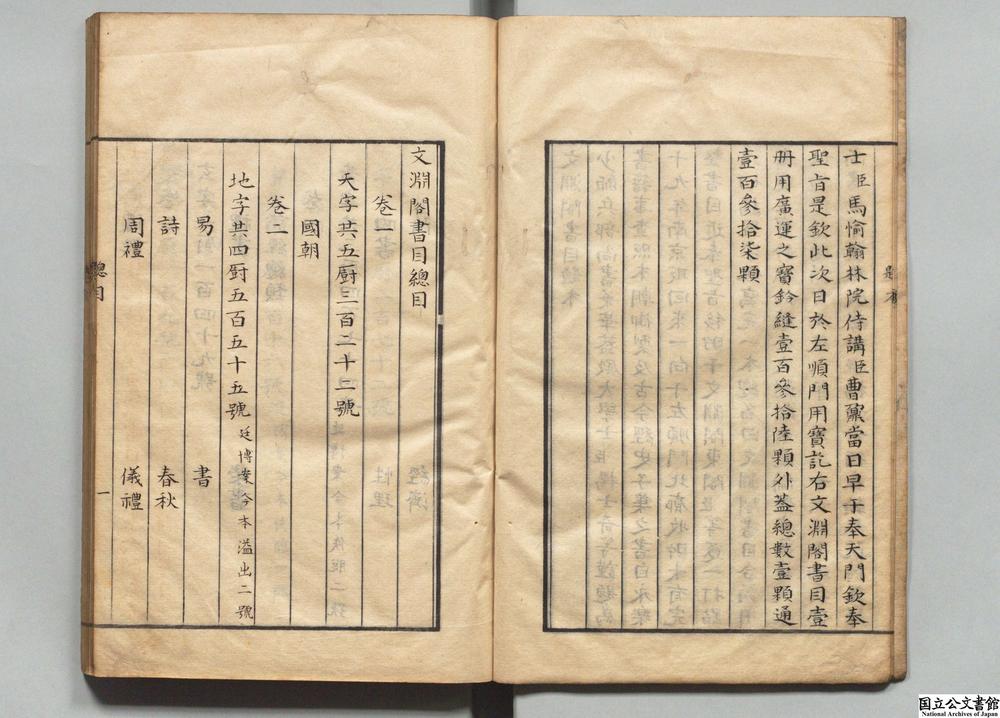 士臣馬愉翰林院侍講臣曹鼐當日早于奉天門欽奉
聖旨是欽此次日於左順門用寶訖右文淵閣書目壹
冊用廣運之寶鈐縫壹百參拾陸顆外蓋總數壹顆通
壹百參拾柒顆
文淵閣書目總目
卷一
天字共五厨三百二十二號
國朝
卷二
地字共四厨五百五十五號 廷博案今本溢出二號
易 書
詩 春秋
周禮 儀禮
總目 一
国立公文書館
National Archives of Japan